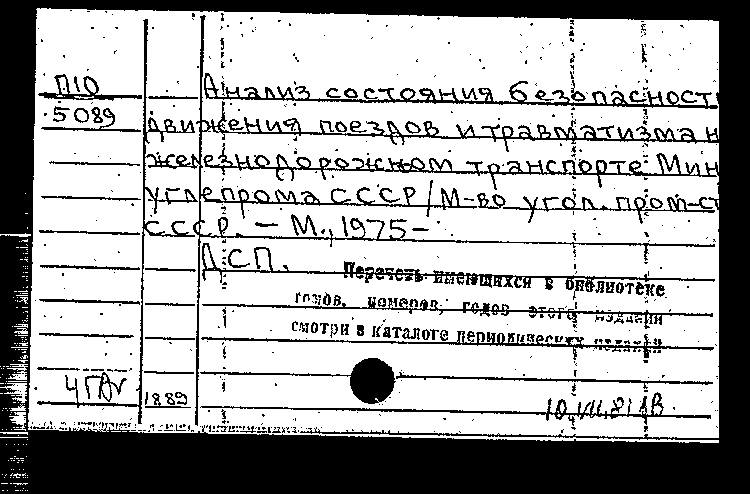 П10
5089
Анализ состояния безопасност
движения поездов и травматизма н
железнодорожном транспорте Мин
углепрома СССР / М-во угол. пром-ст
СССР. — М., 1975 —
ДСП.
Перечень имеющихся в библиотеке
томов, номеров, годов этого издания
смотри в каталоге периодических изданий
1889
10.VII.81